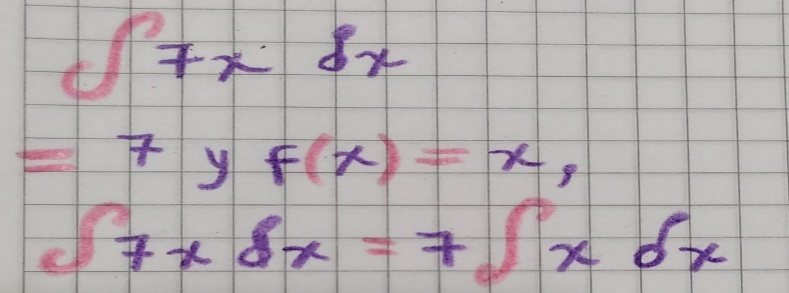 ∫ 7x δx
= 7 y f(x) = x,
∫ 7x δx = 7 ∫ x δx